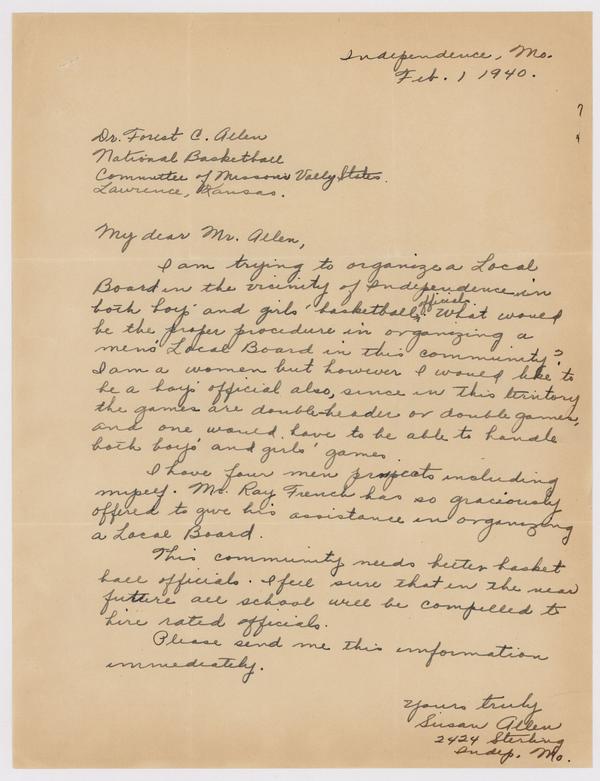 Independence, Mo.
Feb. 1 1940.
Dr. Forest C. Allen
National Basketball
Committee of Missouri Vally States.
Lawrence, Kansas.
My dear Mr. Allen,
I am trying to organize a Local
Board in the vicinity of Independence in
both boys' and girls' basketball officials. What would
be the proper procedure in organizing a
mens' Local Board in this community?
I am a women but however I would like to
be a boys' official also, since in this teritory
the games are double-header or double games,
and one would have to be able to handle
both boys' and girls' games.
I have four men prospects including
myself. Mr. Ray French has so graciously
offered to give his assistance in organizing
a Local Board.
This community needs better basket
ball officials. I feel sure that in the near
future all school will be compelled to
hire rated officials.
Please send me this information
immediately.
Yours truly
Susan Allen
2424 Sterling
Indep. Mo.